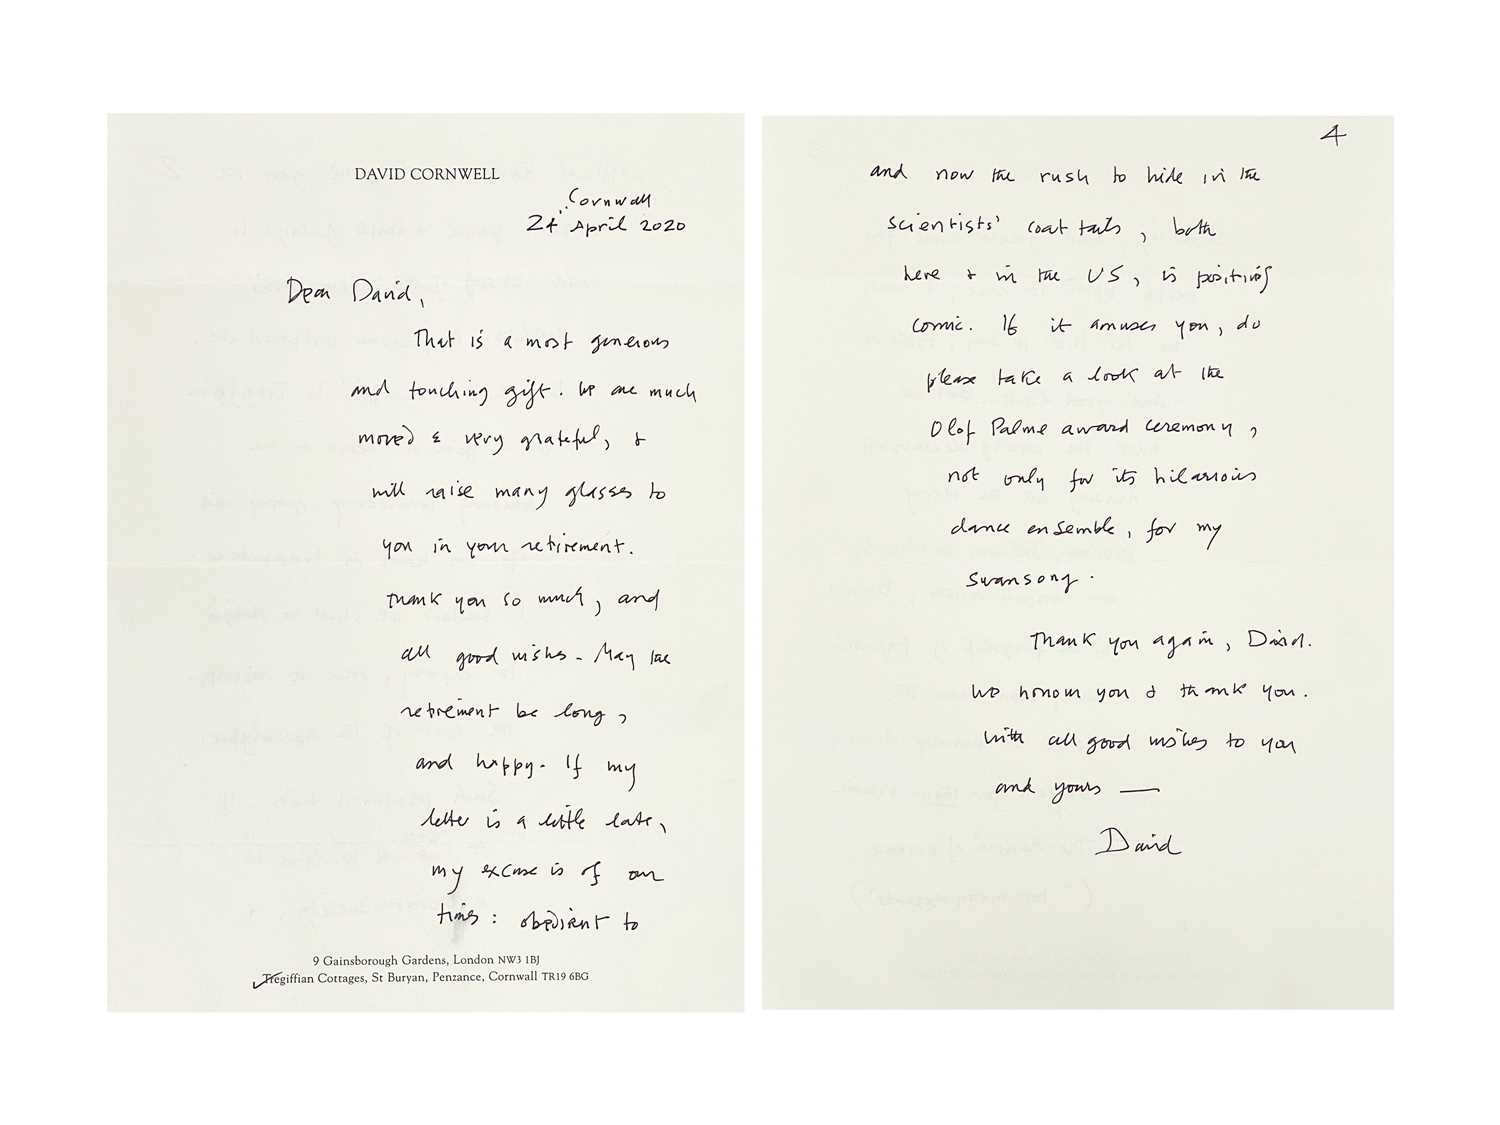 DAVID CORNWELL
Cornwall
24 April 2020
Dear David,
That is a most generous
and touching gift. We are much
moved & very grateful, &
will raise many glasses to
you in your retirement.
Thank you so much, and
all good wishes. May the
retirement be long,
and happy. If my
letter is a little late,
my excuse is of our
times: obedient to
9 Gainsborough Gardens, London NW3 1BJ
Tregiffian Cottages, St Buryan, Penzance, Cornwall TR19 6BG
4
and now the rush to hide in the
scientists' coat tails, both
here & in the US, is positively
comic. If it amuses you, do
please take a look at the
Olof Palme award ceremony,
not only for its hilarious
dance ensemble, for my
swansong.
Thank you again, David.
We honour you & thank you.
With all good wishes to you
and yours —
David